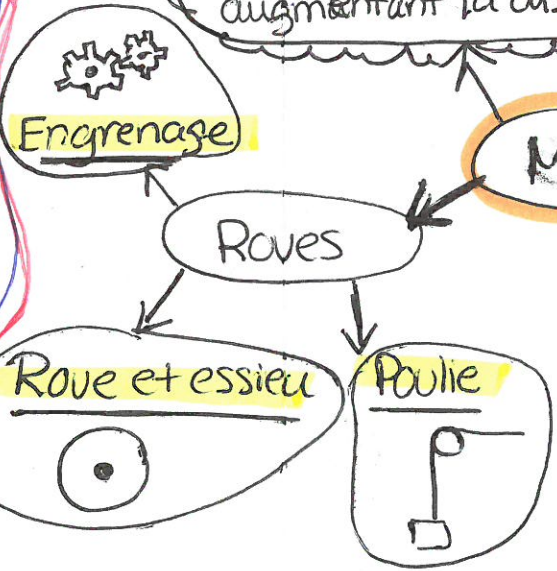 augmentant la
Engrenage
M
Roues
Roue et essieu
Poulie